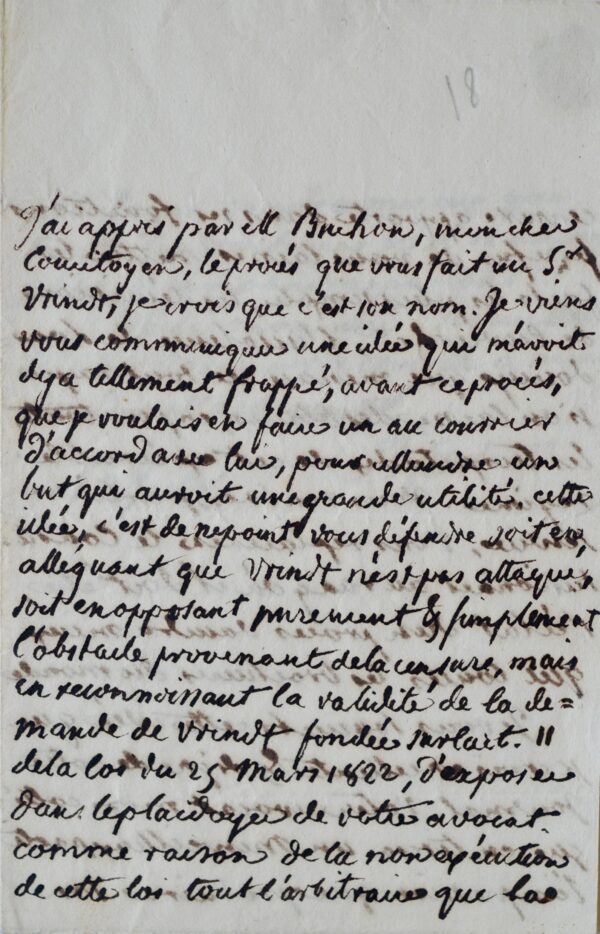 18
J'ai appris par M Buchon, mon cher
Concitoyen, le procès que vous fait un Sr
Vrindt, je crois que c'est son nom. Je viens
vous communiquer une idée qui m'avoit
deja tellement frappé, avant ce procès,
que je voulois en faire un au courrier
d'accord avec lui, pour atteindre un
but qui auroit une grande utilité. cette
idée, c'est de ne point vous défendre soit en
alléguant que Vrindt n'est pas attaqué,
soit en opposant purement & simplement
l'obstacle provenant de la censure, mais
en reconnoissant la validité de la de=
mande de Vrindt fondée sur l'art. 11
de la loi du 25 Mars 1822, d'exposer
dans le plaidoyer de votre avocat
comme raison de la non exécution
de cette loi tout l'arbitraire que la